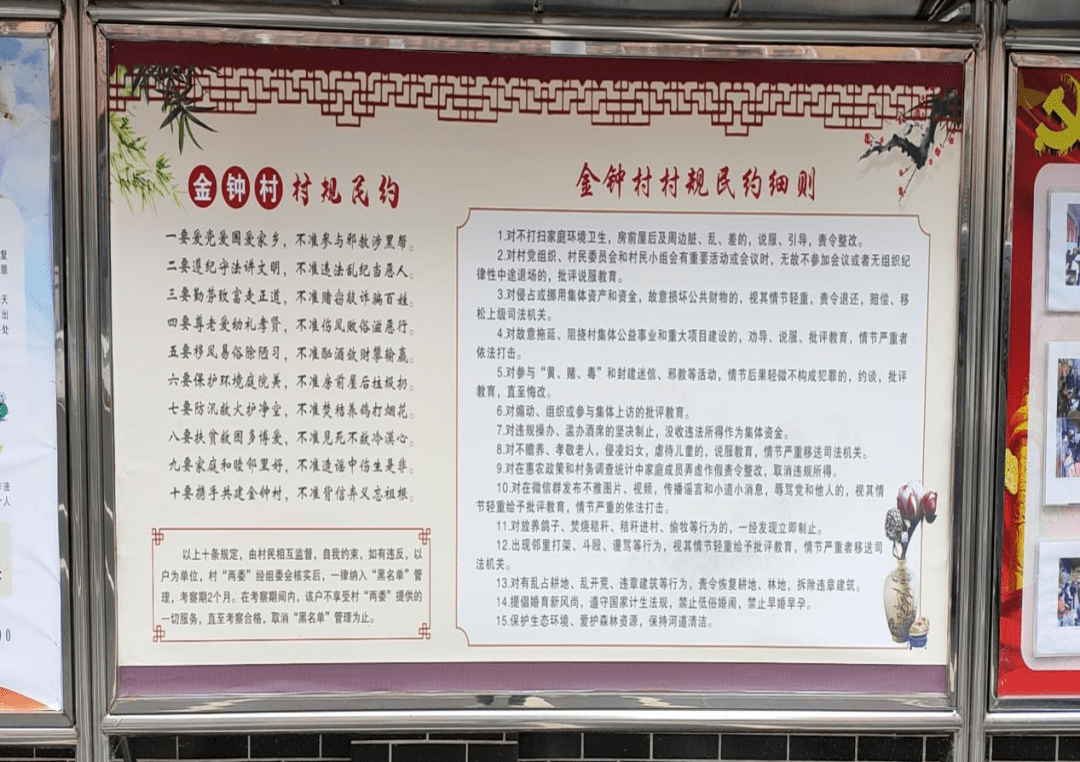 金钟村村规民约
一要爱党爱国爱家乡，不准参与邪教涉黑帮。
二要遵纪守法讲文明，不准违法乱纪当恶人。
三要勤劳致富走正道，不准赌抢敲诈骗百姓。
四要尊老爱幼礼孝贤，不准伤风败俗滋恶行。
五要移风易俗除陋习，不准酗酒敛财攀输赢。
六要保护环境庭院美，不准房前屋后垃圾扔。
七要防汛救火护净空，不准焚秸养鸽打烟花。
八要扶贫救困多博爱，不准见死不救冷漠心。
九要家庭和睦邻里好，不准造谣中伤生是非。
十要携手共建金钟村，不准背信弃义忘祖根。
以上十条规定，由村民相互监督，自我约束，如有违反，以
户为单位，村“两委”经组委会核实后，一律纳入“黑名单”管
理，考察期2个月。在考察期间内，该户不享受村“两委”提供的
一切服务，直至考察合格，取消“黑名单”管理为止。
金钟村村规民约细则
1.对不打扫家庭环境卫生，房前屋后及周边脏、乱、差的，说服、引导，责令整改。
2.对村党组织、村民委员会和村民小组会有重要活动或会议时，无故不参加会议或者无组织纪
律性中途退场的，批评说服教育。
3.对侵占或挪用集体资产和资金，故意损坏公共财物的，视其情节轻重，责令退还，赔偿、移
松上级司法机关。
4.对故意拖延、阻挠村集体公益事业和重大项目建设的，劝导、说服、批评教育，情节严重者
依法打击。
5.对参与“黄、赌、毒”和封建迷信、邪教等活动，情节后果轻微不构成犯罪的，约谈，批评
教育，直至悔改。
6.对煽动、组织或参与集体上访的批评教育。
7.对违规操办、滥办酒席的坚决制止，没收违法所得作为集体资金。
8.对不赡养、孝敬老人，侵凌妇女，虐待儿童的，说服教育，情节严重移送司法机关。
9.对在惠农政策和村务调查统计中家庭成员弄虚作假责令整改，取消违规所得。
10.对在微信群发布不雅图片、视频，传播谣言和小道小消息，辱骂党和他人的，视其情
节轻重给予批评教育，情节严重的依法打击。
11.对放养鸽子、焚烧秸秆、秸秆进村、偷牧等行为的，一经发现立即制止。
12.出现邻里打架、斗殴、谩骂等行为，视其情节轻重给予批评教育，情节严重者移送司
法机关。
13.对有乱占耕地、乱开荒、违章建筑等行为，责令恢复耕地、林地，拆除违章建筑。
14.提倡婚育新风尚，遵守国家计生法规，禁止低俗婚闹，禁止早婚早孕。
15.保护生态环境、爱护森林资源，保持河道清洁。